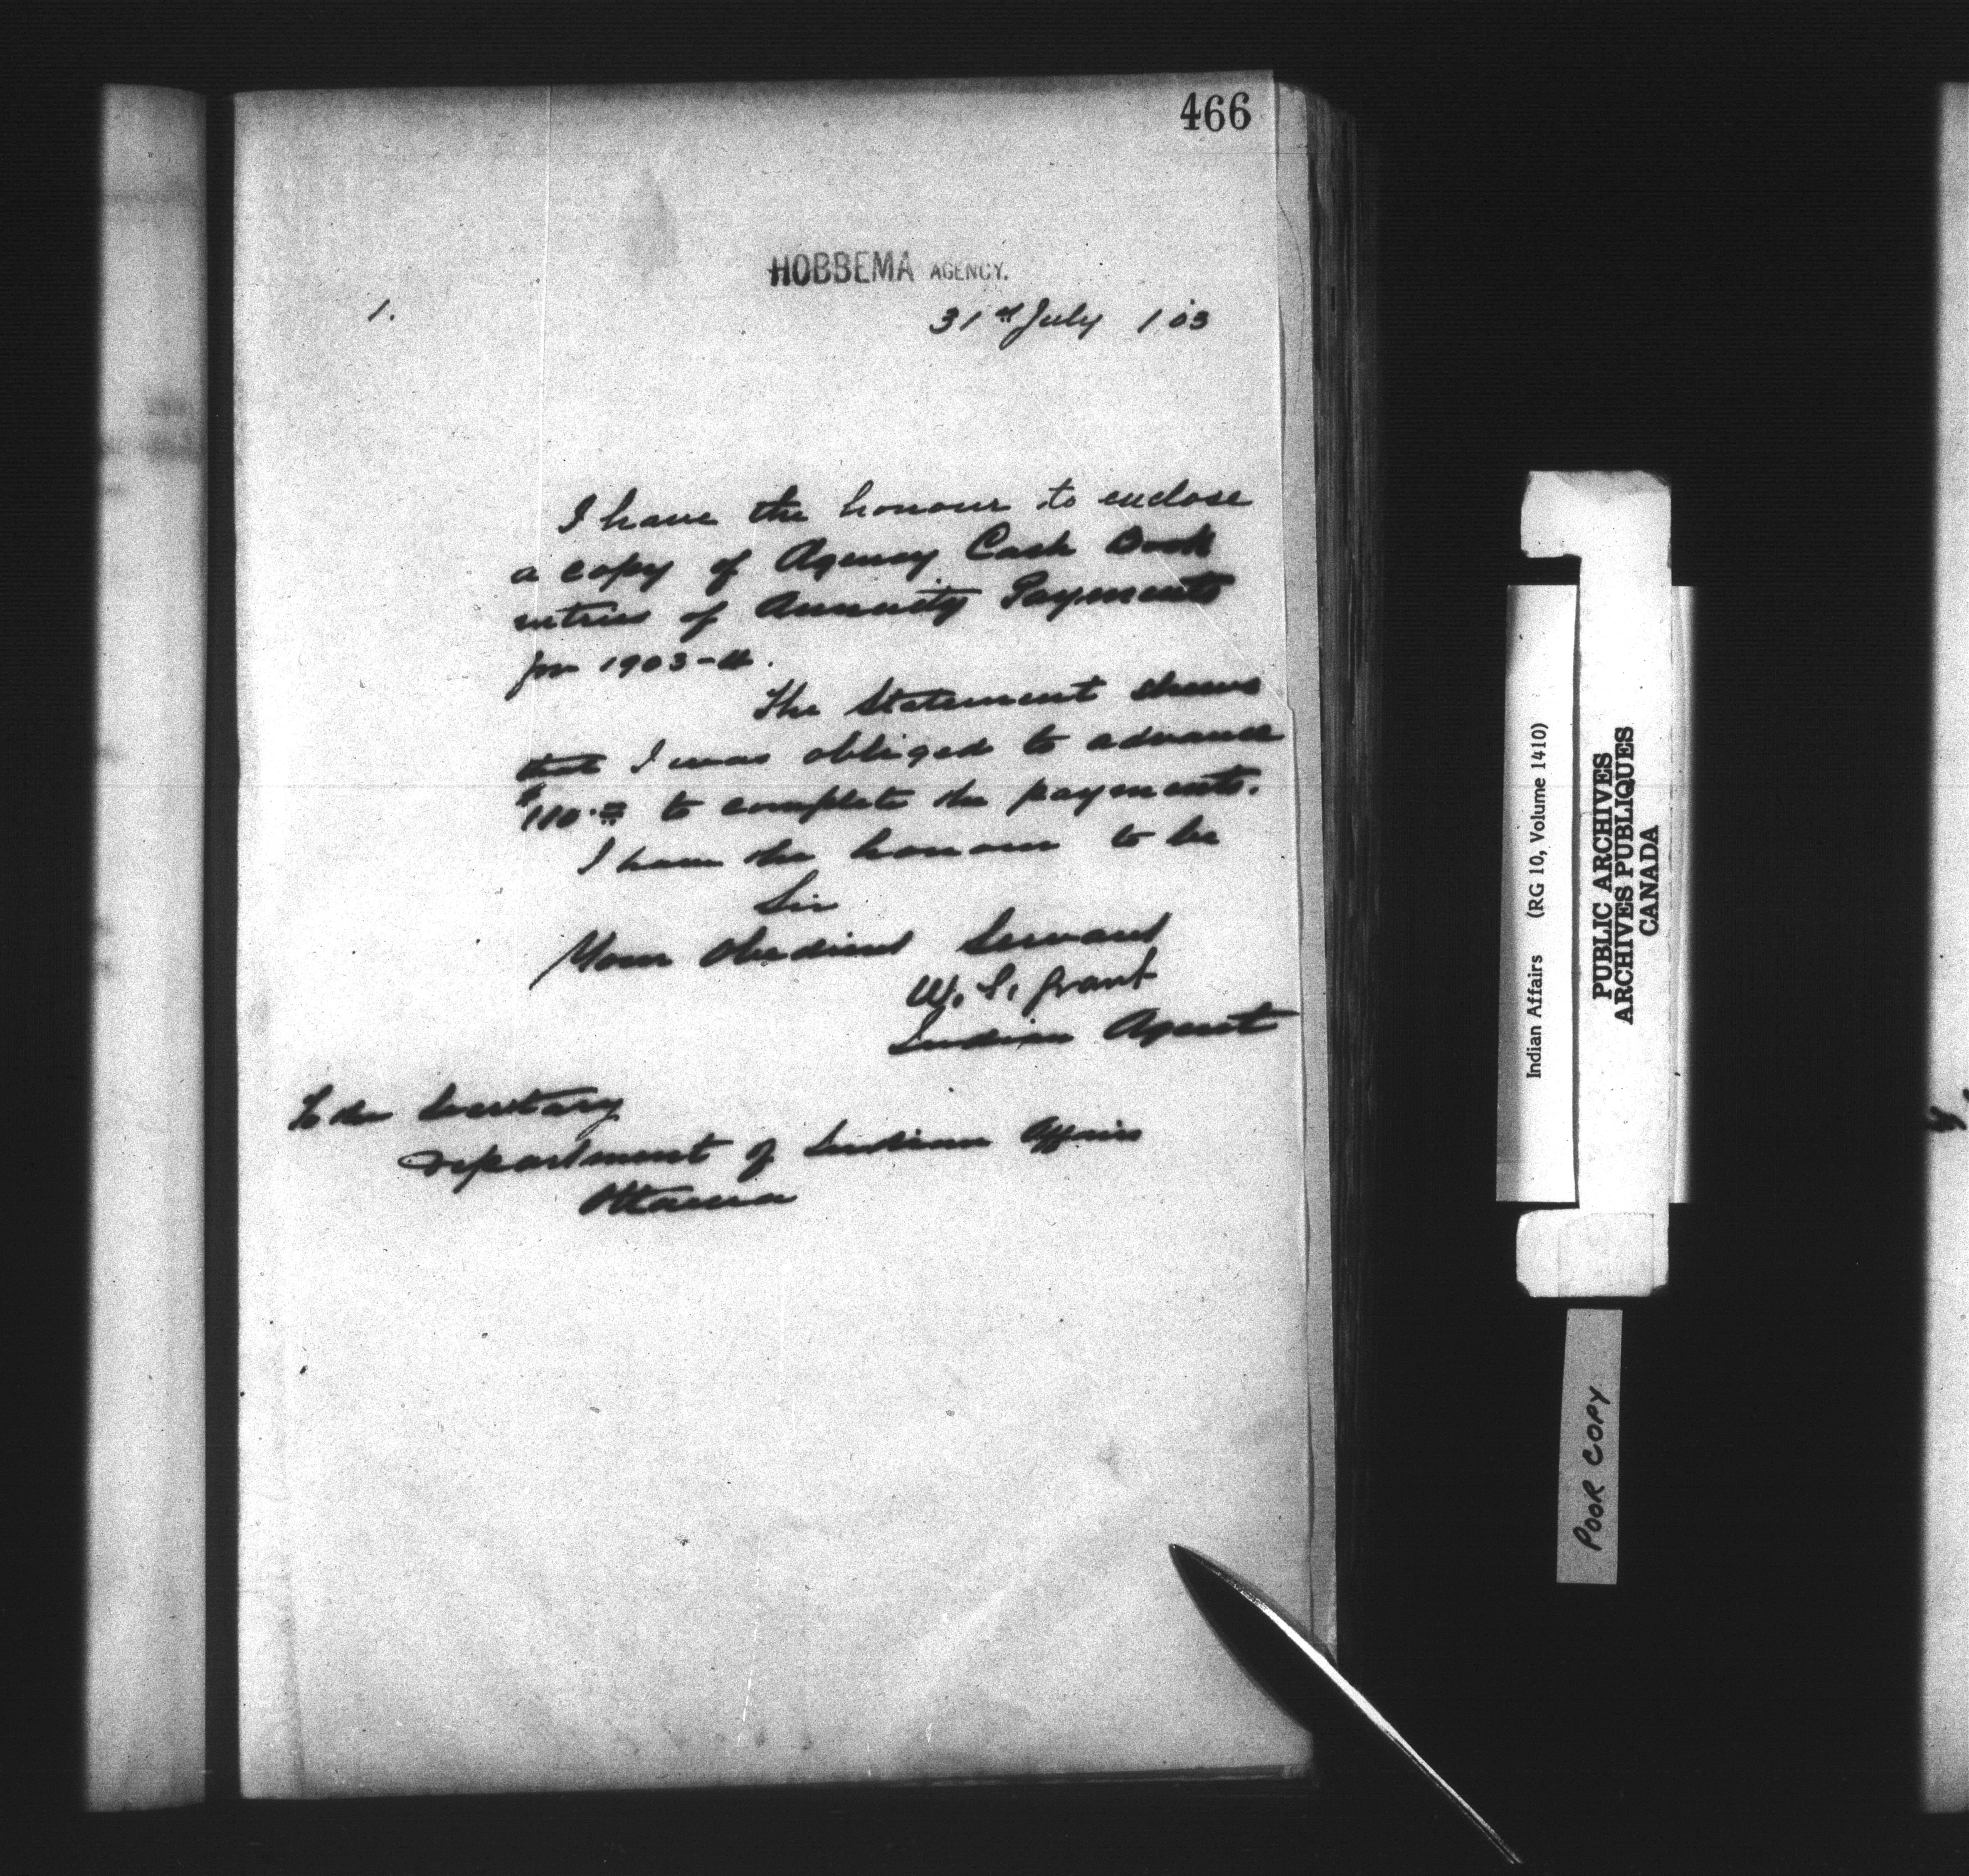 466
HOBBEMA AGENCY.
1.
31st July 1903
I have the honour to enclose
a copy of Agency Cash Book
entries of Annuity Payments
for 1903-4.
The Statement shews
that I was obliged to advance
$110.00 to complete the payments.
I have the honour to be
Sir
Your Obedient Servant
W. S. Grant
Indian Agent
To the Secretary
Department of Indian Affairs
Ottawa
Indian Affairs (RG 10, Volume 1410)
PUBLIC ARCHIVES
ARCHIVES PUBLIQUES
CANADA
POOR COPY